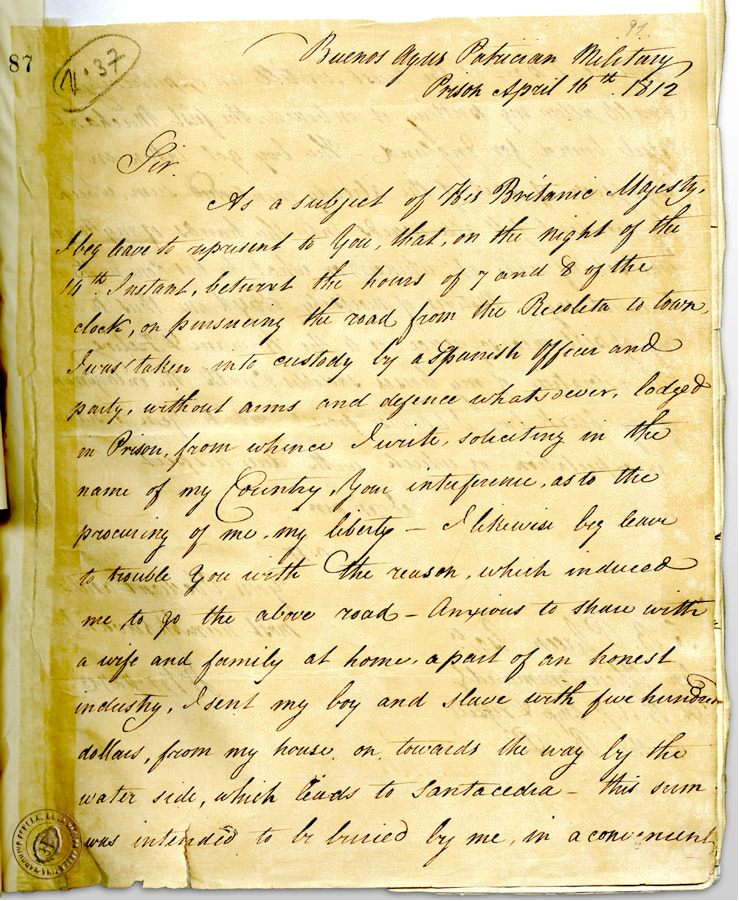 91
87
N. 37
Buenos Ayres Patrician Military
Prison April 16th. 1812
Sir.
As a subject of His Britanic Majesty,
I beg leave to represent to You, that, on the night of the
14th. Instant, betwixt the hours of 7 and 8 of the
clock, on pursueing the road from the Recoleta to town,
I was taken into custody by a Spanish Officer and
party, without arms and defence whatsoever, lodged
in Prison, from whence I write, soliciting in the
name of my Country, Your interference, as to the
procuring of me, my liberty – I likewise beg leave
to trouble You with the reason, which induced
me, to go the above road – Anxious to share with
a wife and family at home, a part of an honest
industry, I sent my boy and slave with five hundred
dollars, from my house, on, towards the way by the
water side, which leads to Santacedia – this sum
was intended to be buried by me, in a convenient